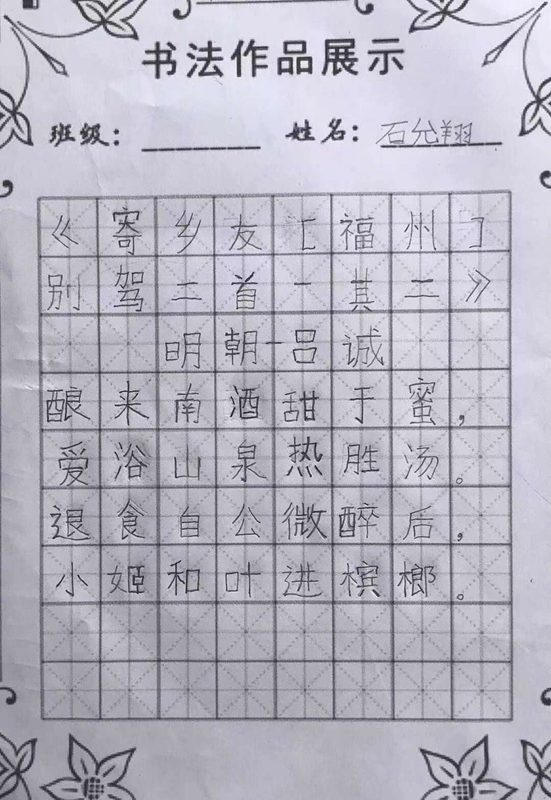 书法作品展示
班级： 姓名：石允翔
《寄乡友［福州］
别驾二首-其二》
明朝-吕诚
酿来南酒甜于蜜，
爱浴山泉热胜汤。
退食自公微醉后，
小姬和叶进槟榔。